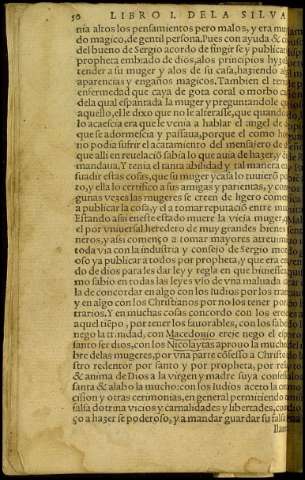 50 LIBRO I. DELA SILVA
nia altos los pensamientos pero malos, y era mu
do magico, de gentil persona, Pues con ayuda & co
del bueno de Sergio acordo de fingirse y publicar
propheta embiado de dios, alos principios hyzo
tender a su muger y alos de su casa, haziendo al
aparencias y engaños magicos. Tambien el ten
enfermedad que caya de gota coral o morbo c
dela qual espantada la muger y preguntandole q
aquello, el le dixo que no le alterasse, que quando
lo acaescia era que le venia a hablar el angel de
que se adormescia y passaua, porque el como h
no podia sufrir el acatamiento del mensajero de
que alli en reuelació sabia lo que auia de hazer, y
mandaua. Y tenia el tanta abilidad y tal manera e
suadir estas cosas, que su muger y casa lo tuuieró p
to, y ella lo certifico a sus amigas y parientas, y con
gunas vezes las mugeres se creen de ligero comé
a publicar la cosa, y el a tomar reputació entre mu
Estando assi en este estado muere la vieja muger,
el por vniuersal heredero de muy grandes bienes
neros, y assi començo a tomar mayores atreuim
toda via con la industria y consejo de Sergio mo
oso ya publicar a todos por propheta, y que era en
do de dios para les dar ley y regla en que biuiesse
mo sabio en todas las leyes vso de vna maluada
la de concordar en algo con los Iudios por los tra
y en algo con los Christianos por no los tener por
trarios, Y en muchas cosas concordo con los ere
aquel tiépo, por tener los fauorables, con los sabe
nego la trinidad, con Macedonio ereje nego el
santo ser dios, con los Nicolaytas aprouo la much
bre delas mugeres, por vna parte cófesso a Christo
stro redentor por santo y por propheta, por re
& anima de Dios a la virgen y madre suya confes
santa & alabo la mucho: con los Iudios aceto la
cision y otras cerimonias, en general permitiendo
falsa dotrina vicios y carnalidades y libertades, co
ço a hazerse poderoso, y a mandar guardar su falsa